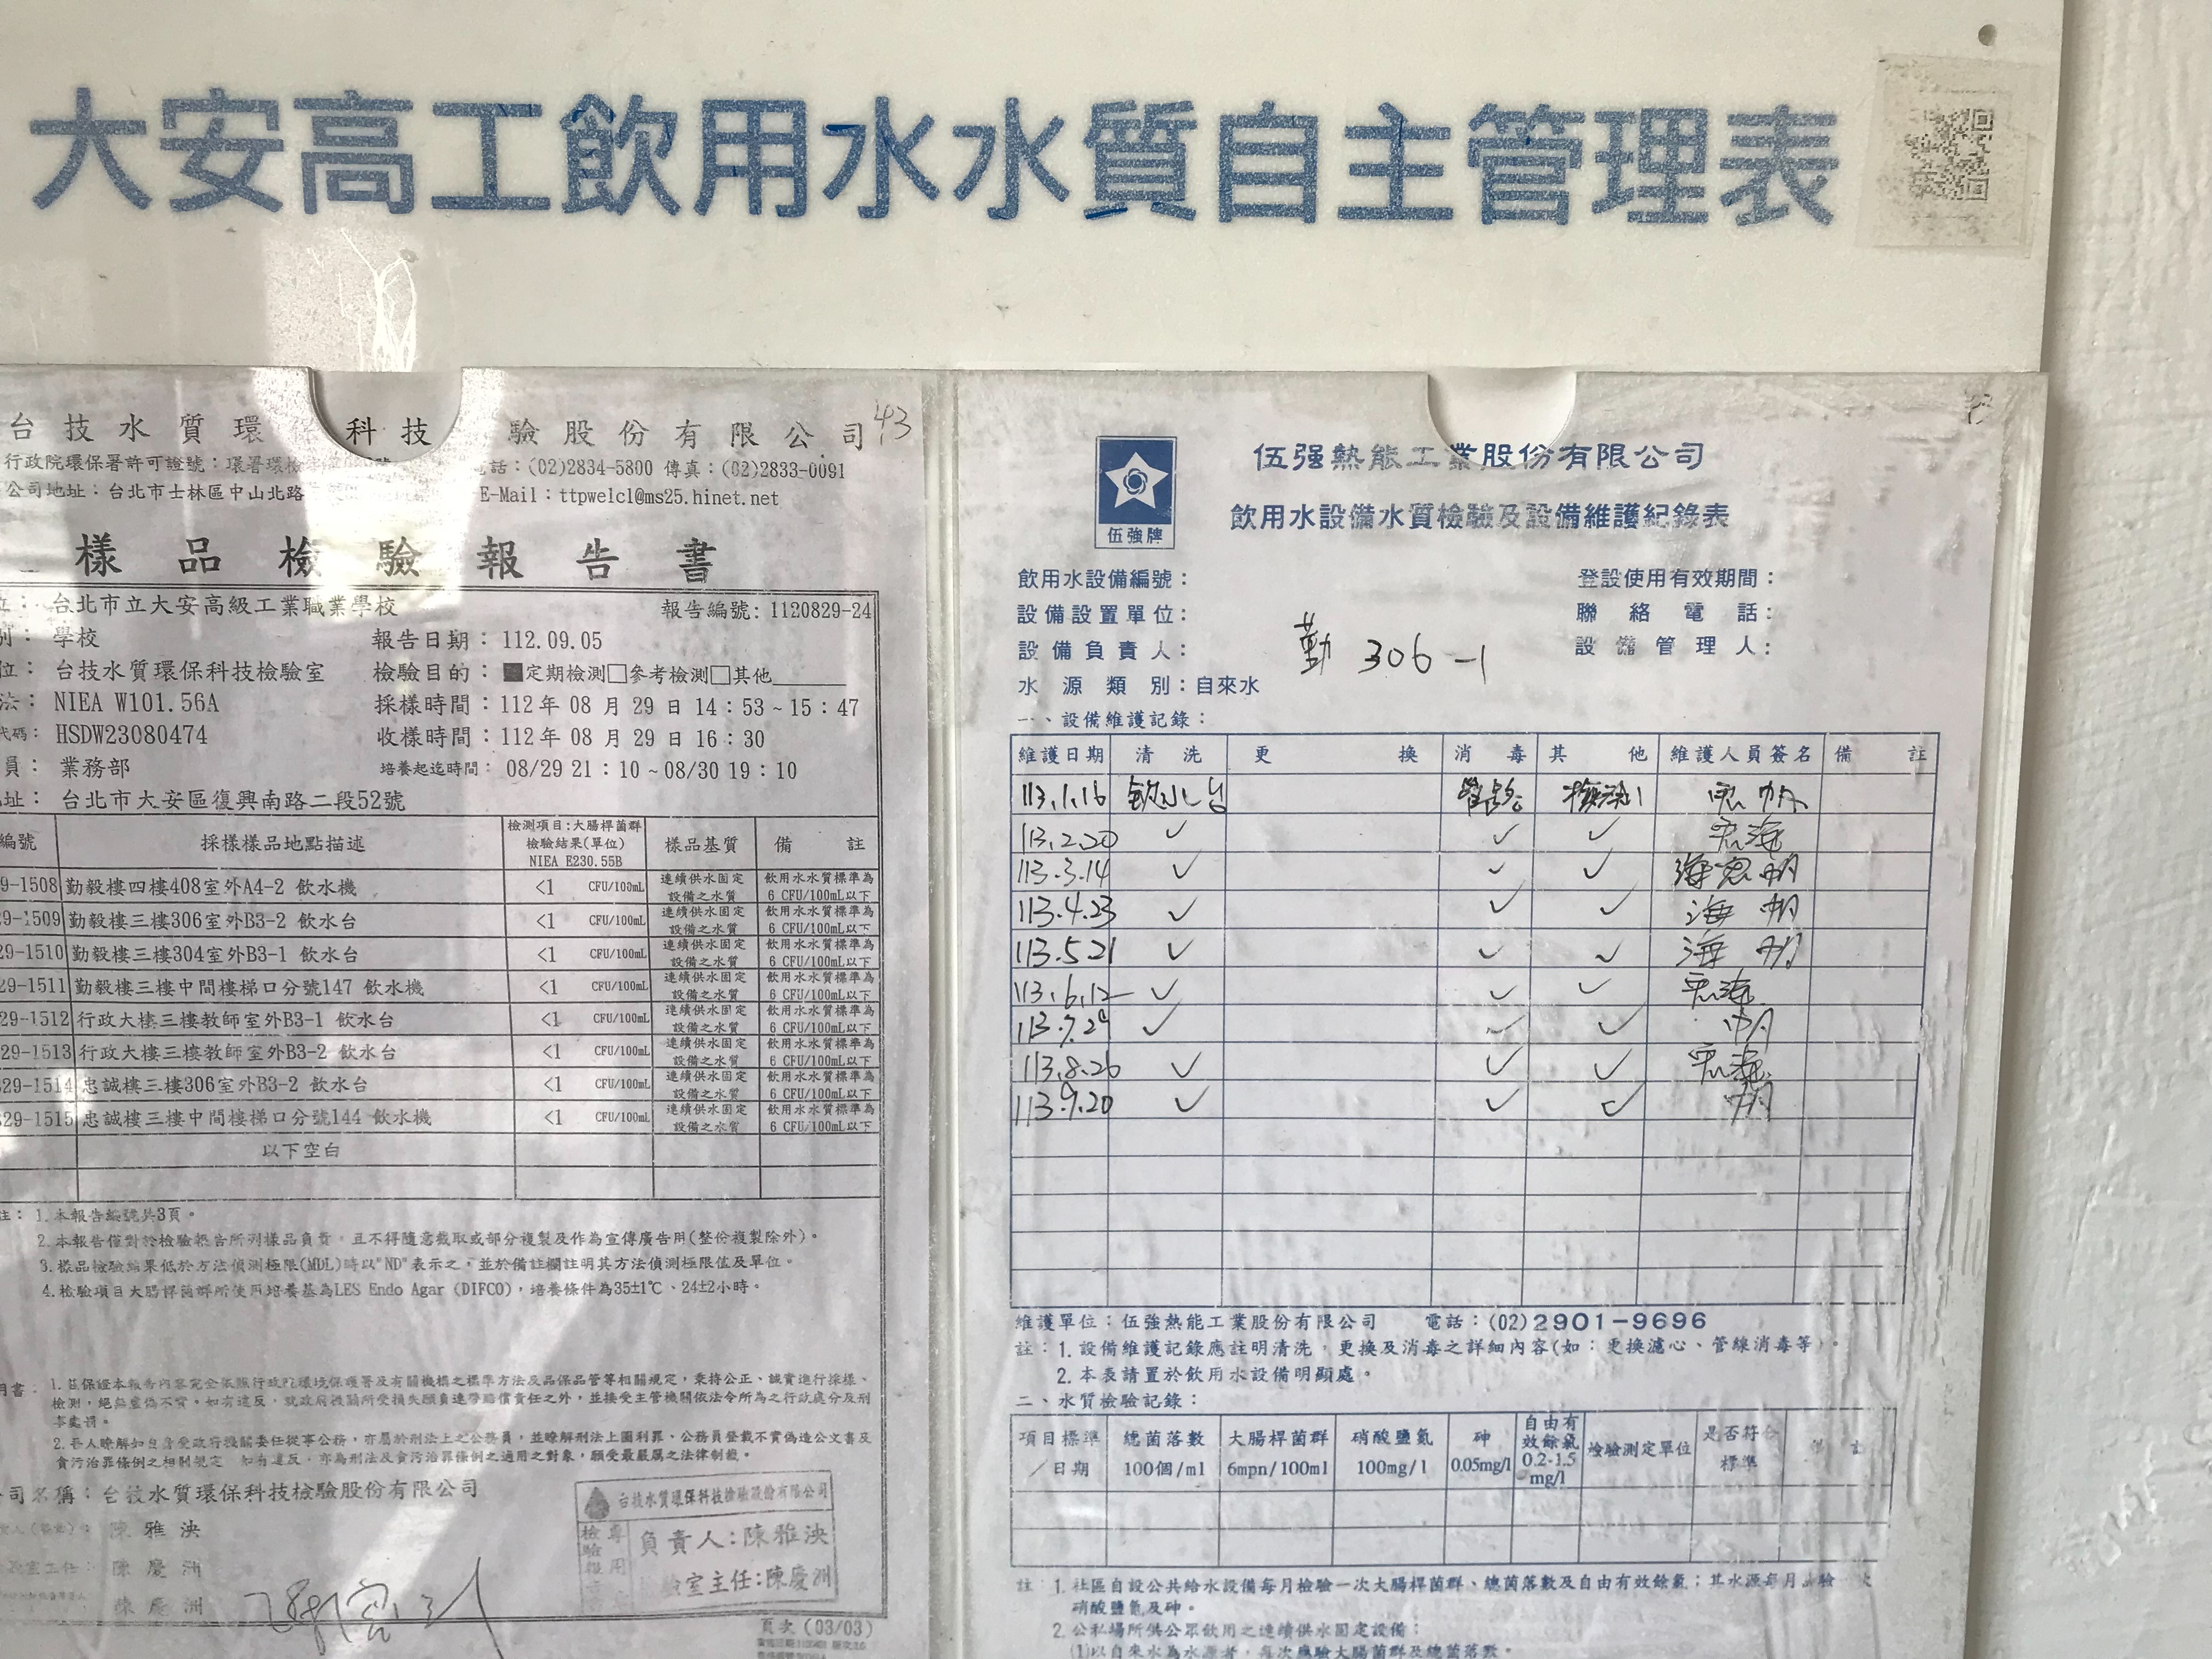 大安高工飲用水水質自主管理表
台技水質環保科技 驗股份有限公司
43
行政院環保署許可證號：環署環檢 電話：(02)2834-5800 傳真：(02)2833-0091
公司地址：台北市士林區中山北路 E-Mail：ttpwelcl@ms25.hinet.net
樣品檢驗報告書
台北市立大安高級工業職業學校 報告編號: 1120829-24
學校 報告日期：112.09.05
台技水質環保科技檢驗室 檢驗目的：■定期檢測□參考檢測□其他
NIEA W101.56A 採樣時間：112年 08 月 29 日 14：53~15：47
代碼：HSDW23080474 收樣時間：112年 08 月 29 日 16：30
員：業務部 培養起迄時間：08/29 21：10~08/30 19：10
址：台北市大安區復興南路二段52號
編號 採樣樣品地點描述 檢測項目:大腸桿菌群 檢驗結果(單位) NIEA E230.55B 樣品基質 備註
9-1508 勤毅樓四樓408室外A4-2 飲水機 <1 CFU/100mL 連續供水固定設備之水質 飲用水水質標準為 6 CFU/100mL以下
29-1509 勤毅樓三樓306室外B3-2 飲水台 <1 CFU/100mL 連續供水固定設備之水質 飲用水水質標準為 6 CFU/100mL以下
29-1510 勤毅樓三樓304室外B3-1 飲水台 <1 CFU/100mL 連續供水固定設備之水質 飲用水水質標準為 6 CFU/100mL以下
29-1511 勤毅樓三樓中間樓梯口分號147 飲水機 <1 CFU/100mL 連續供水固定設備之水質 飲用水水質標準為 6 CFU/100mL以下
29-1512 行政大樓三樓教師室外B3-1 飲水台 <1 CFU/100mL 連續供水固定設備之水質 飲用水水質標準為 6 CFU/100mL以下
29-1513 行政大樓三樓教師室外B3-2 飲水台 <1 CFU/100mL 連續供水固定設備之水質 飲用水水質標準為 6 CFU/100mL以下
829-1514 忠誠樓三樓306室外B3-2 飲水台 <1 CFU/100mL 連續供水固定設備之水質 飲用水水質標準為 6 CFU/100mL以下
829-1515 忠誠樓三樓中間樓梯口分號144 飲水機 <1 CFU/100mL 連續供水固定設備之水質 飲用水水質標準為 6 CFU/100mL以下
以下空白
註：1.本報告編號共3頁。
2.本報告僅對於檢驗報告所列樣品負責，且不得隨意截取或部分複製及作為宣傳廣告用(整份複製除外)。
3.樣品檢驗結果低於方法偵測極限(MDL)時以"ND"表示之，並於備註欄註明其方法偵測極限值及單位。
4.檢驗項目大腸桿菌群所使用培養基為LES Endo Agar (DIFCO)，培養條件為35±1℃、24±2小時。
1.茲保證本報告內容完全依照行政院環境保護署及有關機構之標準方法及品保品管等相關規定，秉持公正、誠實進行採樣、
檢測，絕無虛偽不實，如有違反，就政府機關所受損失願負連帶賠償責任之外，並接受主管機關依法令所為之行政處分及刑
事處罰。
2.吾人瞭解如自身受政府機關委任從事公務，亦屬於刑法上之公務員，並瞭解刑法上圖利罪、公務員登載不實偽造公文書及
貪污治罪條例之相關規定，如有違反，亦為刑法及貪污治罪條例之適用之對象，願受最嚴厲之法律制裁。
司名稱：台技水質環保科技檢驗股份有限公司
陳雅泱
陳慶洲
陳慶洲
台技水質環保科技檢驗股份有限公司
負責人：陳雅泱
驗室主任：陳慶洲
頁次 (03/03)
伍强熱能工業股份有限公司
伍強牌
飲用水設備水質檢驗及設備維護紀錄表
飲用水設備編號： 登設使用有效期間：
設備設置單位： 聯絡電話：
設備負責人： 勤 306-1 設備管理人：
水源類別：自來水
一、設備維護記錄：
維護日期 清洗 更換 消毒 其他 維護人員簽名 備註
113.1.16 飲水台 管路
113.2.20 ✓ ✓ ✓
113.3.14 ✓ ✓ ✓
113.4.23 ✓ ✓ ✓ 海 帆
113.5.21 ✓ ✓ ✓ 海 帆
113.6.12 ✓ ✓ ✓
113.7.29 ✓ ✓ ✓ 帆
113.8.26 ✓ ✓ ✓
113.9.20 ✓ ✓ ✓ 帆
維護單位：伍強熱能工業股份有限公司 電話：(02)2901-9696
註：1.設備維護記錄應註明清洗，更換及消毒之詳細內容(如：更換濾心、管線消毒等)。
2.本表請置於飲用水設備明顯處。
二、水質檢驗記錄：
項目標準／日期 總菌落數 100個/ml 大腸桿菌群 6mpn/100ml 硝酸鹽氮 100mg/l 砷 0.05mg/l 自由有效餘氯 0.2-1.5 mg/l 檢驗測定單位 是否符合標準 備註
註：1.社區自設公共給水設備每月檢驗一次大腸桿菌群、總菌落數及自由有效餘氯；其水源每月 驗 次
硝酸鹽氮及砷。
2.公私場所供公眾飲用之連續供水固定設備：
(1)以自來水為水源者，每次應驗大腸桿菌群及總菌落數。